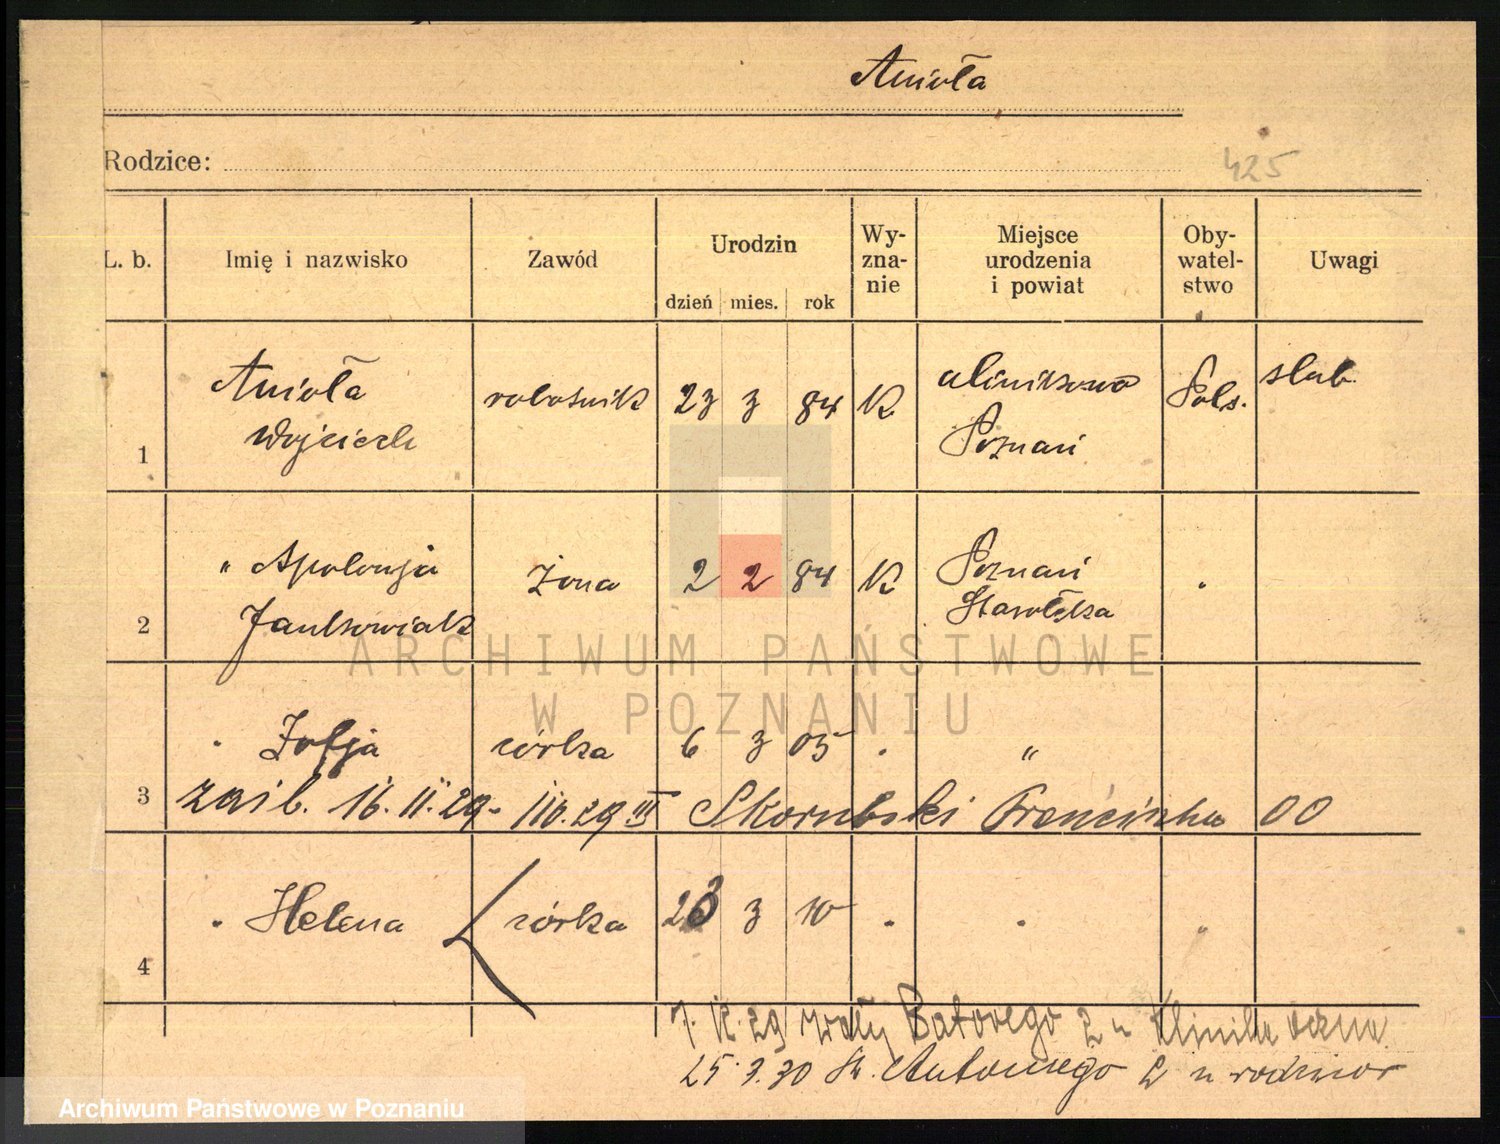 Anioła
Rodzice:
425
L. b. Imię i nazwisko Zawód Urodzin dzień mies. rok Wy-zna-nie Miejsce urodzenia i powiat Oby-watel-stwo Uwagi
1 Anioła Wojciech robotnik 23 3 84 K Poznań Pols. slub.
2 " Apolonja Jankowiak żona 2 2 84 K Poznań Starołęka
3 Zofja córka 6 3 05 "
zaśl. 16. II. 29 - 29 III Skorubski Franciszka 00
4 Helena córka 3 10
7. IX. 29 Wały Batorego 2 u Klinika oczna
25.3.30 św. Antoniego 2 u rodziców
ARCHIWUM PAŃSTWOWE
W POZNANIU
Archiwum Państwowe w Poznaniu